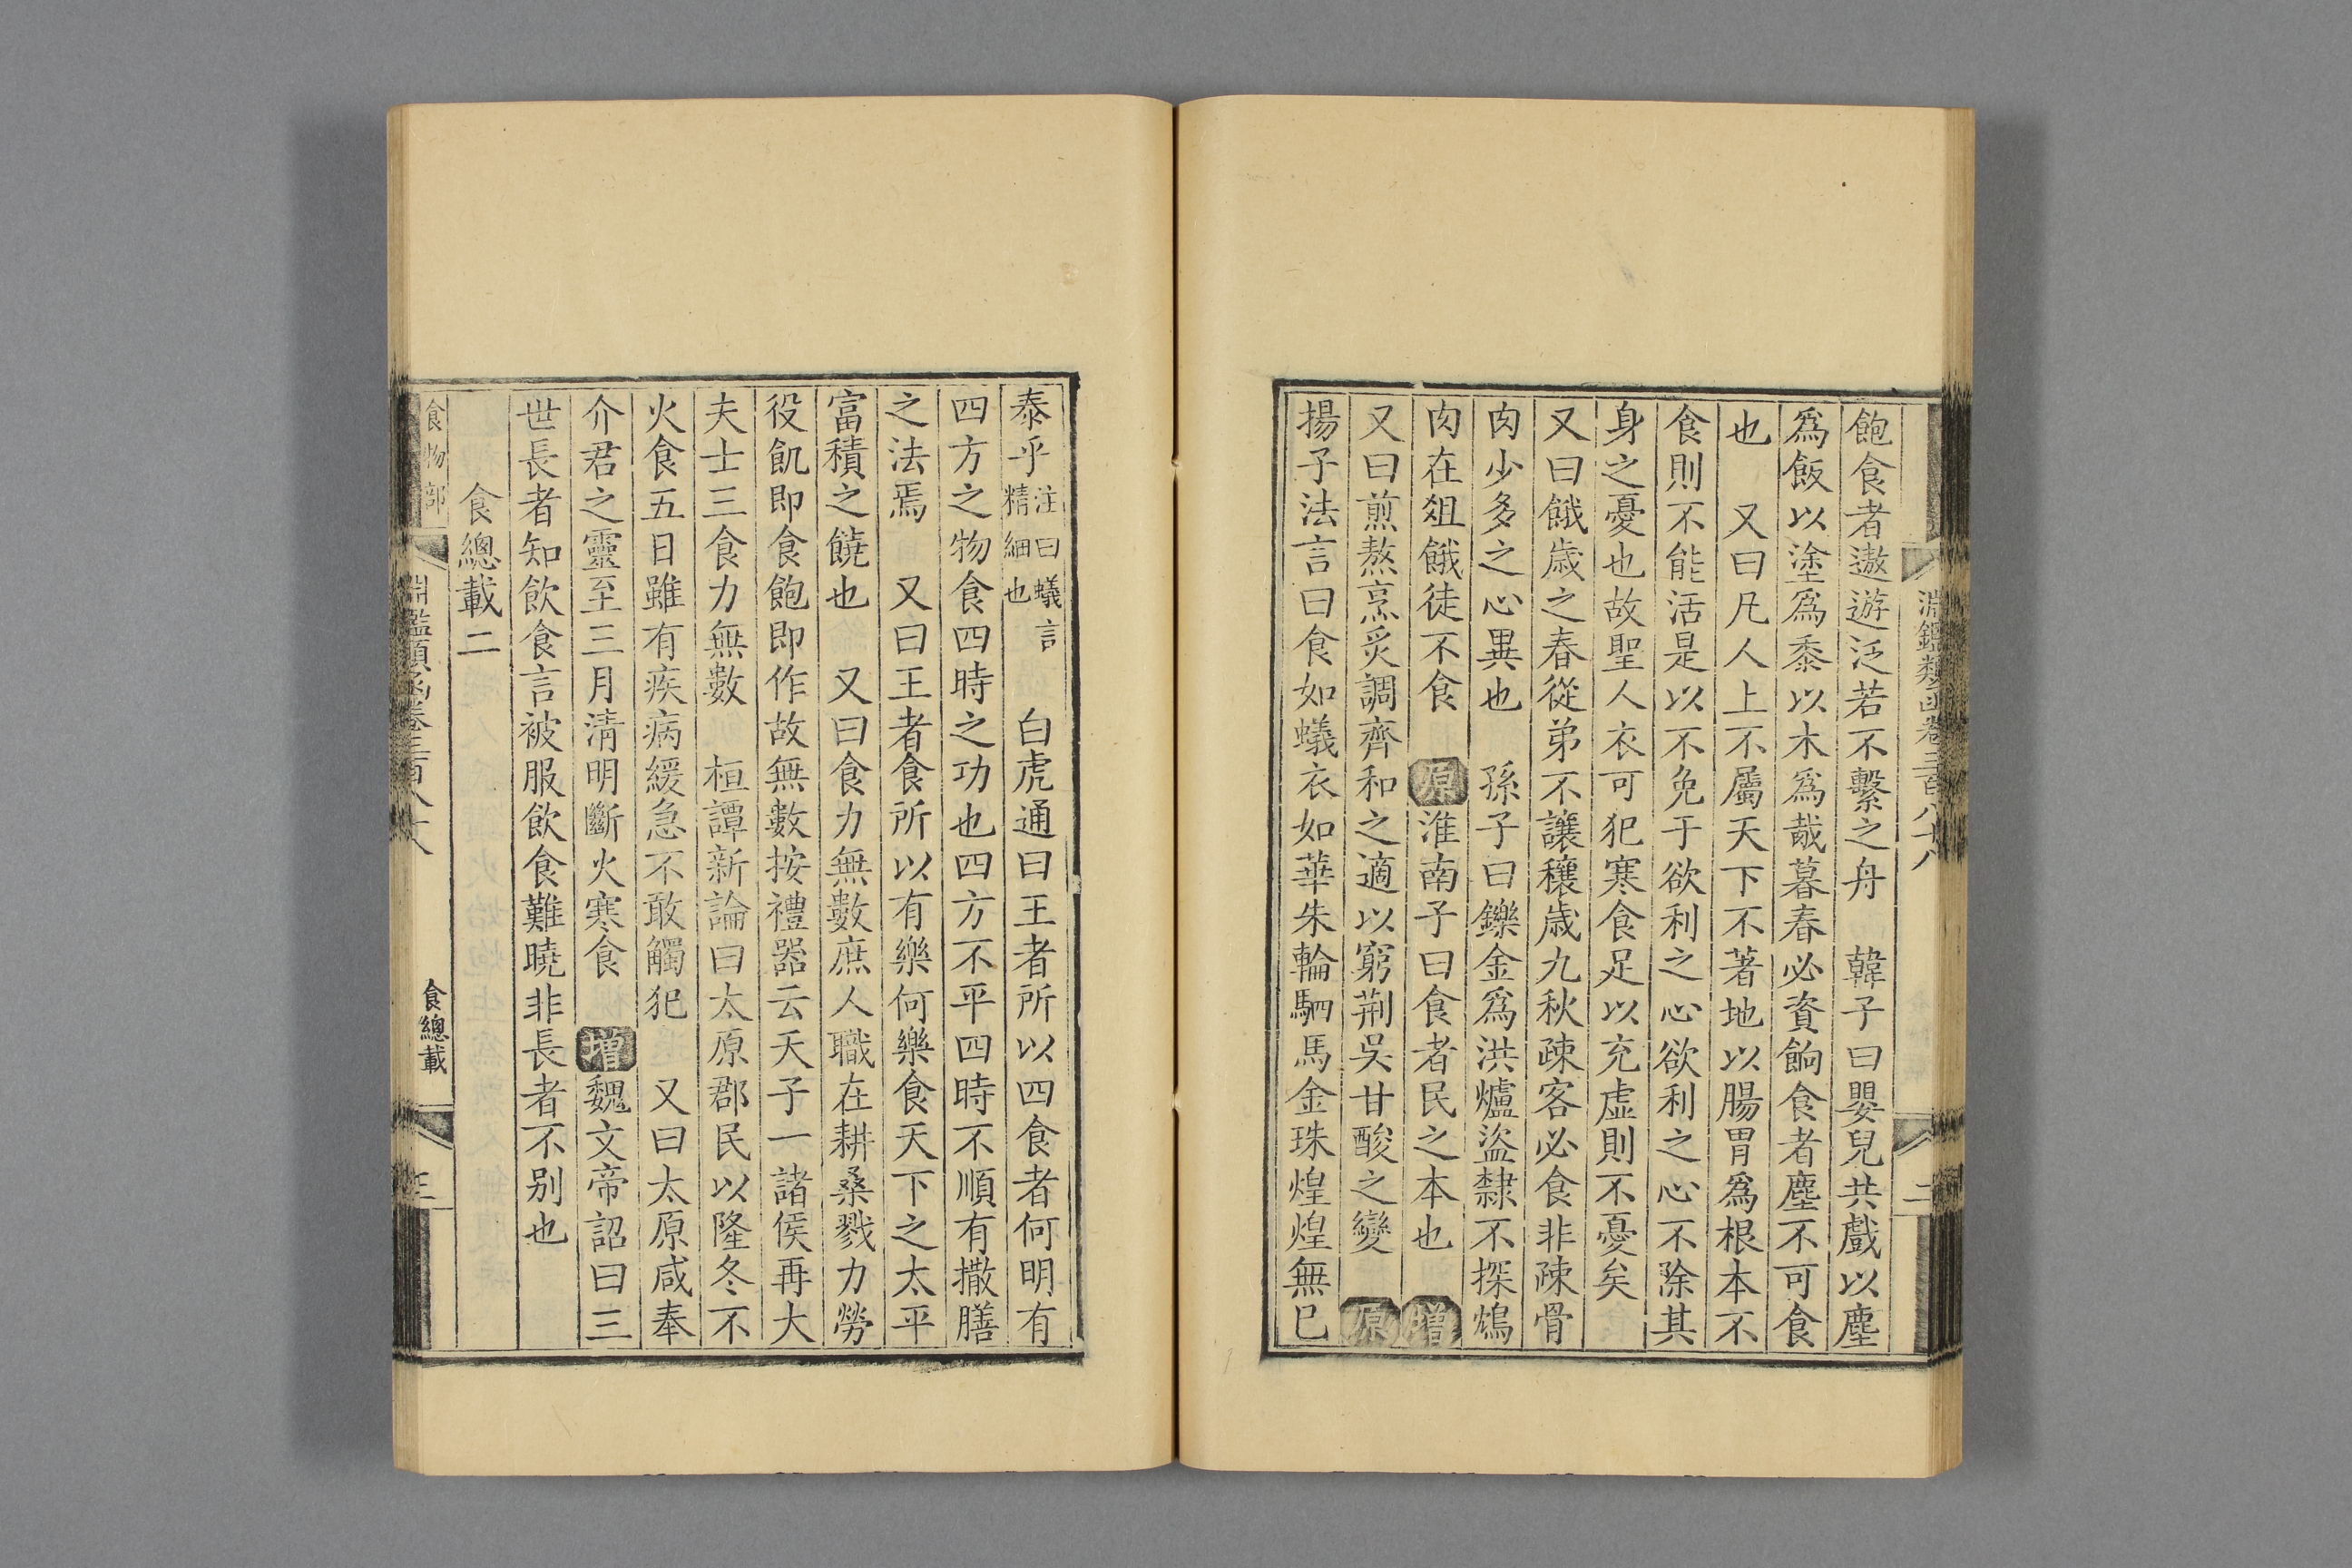 淵鑑類函卷三百八十八
二
飽食者遨遊泛若不繫之舟　韓子曰嬰兒共戲以塵
爲飯以塗爲黍以木爲胾暮春必資餉食者塵不可食
也　又曰凡人上不屬天下不著地以腸胃爲根本不
食則不能活是以不免于欲利之心欲利之心不除其
身之憂也故聖人衣可犯寒食足以充虛則不憂矣
又曰餓歲之春從弟不讓穰歲九秋疎客必食非疎骨
肉少多之心異也　孫子曰鑠金爲洪爐盜隸不探鴆
肉在俎餓徒不食　原淮南子曰食者民之本也　增
又曰煎熬烹炙調齊和之適以窮荆吳甘酸之變　原
揚子法言曰食如蟻衣如華朱輪駟馬金珠煌煌無已
泰乎注曰蟻言精細也　白虎通曰王者所以四食者何明有
四方之物食四時之功也四方不平四時不順有撤膳
之法焉　又曰王者食所以有樂何樂食天下之太平
富積之饒也　又曰食力無數庶人職在耕桑戮力勞
役飢即食飽即作故無數按禮器云天子一諸侯再大
夫士三食力無數　桓譚新論曰太原郡民以隆冬不
火食五日雖有疾病緩急不敢觸犯　又曰太原咸奉
介君之靈至三月清明斷火寒食　增魏文帝詔曰三
世長者知飲食言被服飲食難曉非長者不别也
食總載二
食物部
淵鑑類函卷三百八十八
食總載
三